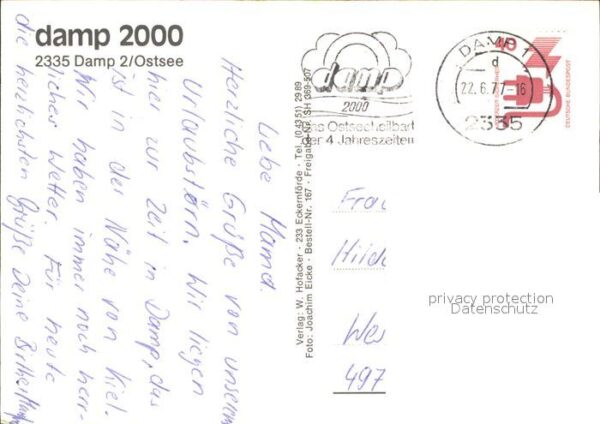 damp 2000
2335 Damp 2/Ostsee
Liebe Mama.
Herzliche Grüße von unserem
Urlaubstörn. Wir liegen
hier zur Zeit in Damp, das
ist in der Nähe von Kiel.
Wir haben immer noch herr-
liches Wetter. Für heute
die herzlichsten Grüße Deine
Verlag: W. Hofacker - 233 Eckernförde - Tel. (0 43 51) 29 89
Foto: Joachim Eicke - Bestell-Nr. 167 - Freigabe-Nr. SH 069-507
damp
2000
Ostseeheilbad
4 Jahreszeiten
DAMP 1
d
22.6.77-16
2335
40
DEUTSCHE BUNDESPOST
Frau
Hilde
Wes
497
privacy protection
Datenschutz